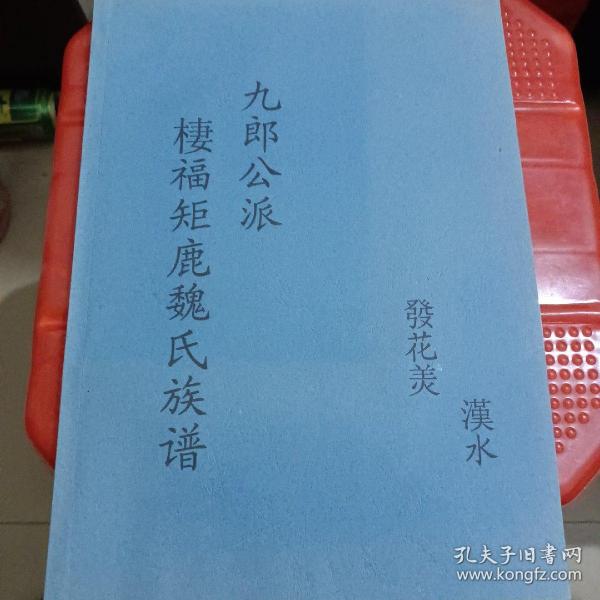 漢水
發花羙
九郎公派
棲福矩鹿魏氏族谱
孔夫子旧书网
www.kongfz.com